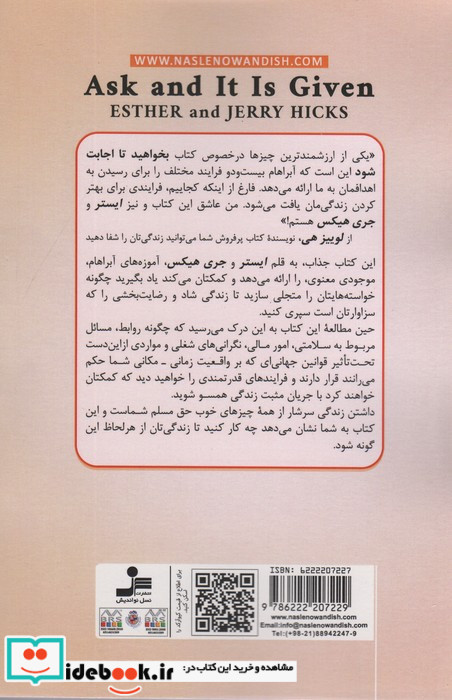 WWW.NASLENOWANDISH.COM
Ask and It Is Given
ESTHER and JERRY HICKS
«یکی از ارزشمندترین چیزها درخصوص کتاب بخواهید تا اجابت
شود این است که آبراهام بیست‌ودو فرایند مختلف را برای رسیدن به
اهدافمان به ما ارائه می‌دهد. فارغ از اینکه کجاییم، فرایندی برای بهتر
کردن زندگی‌مان یافت می‌شود. من عاشق این کتاب و نیز ایستر و
جری هیکس هستم!»
از لوییز هی، نویسندهٔ کتاب پرفروش شما می‌توانید زندگی‌تان را شفا دهید
این کتاب جذاب، به قلم ایستر و جری هیکس، آموزه‌های آبراهام،
موجودی معنوی، را ارائه می‌دهد و کمکتان می‌کند یاد بگیرید چگونه
خواسته‌هایتان را متجلی سازید تا زندگی شاد و رضایت‌بخشی را که
سزاوارتان است سپری کنید.
حین مطالعهٔ این کتاب به این درک می‌رسید که چگونه روابط، مسائل
مربوط به سلامتی، امور مالی، نگرانی‌های شغلی و مواردی ازاین‌دست
تحت‌تأثیر قوانین جهانی‌ای که بر واقعیت زمانی - مکانی شما حکم
می‌رانند قرار دارند و فرایندهای قدرتمندی را خواهید دید که کمکتان
خواهند کرد با جریان مثبت زندگی همسو شوید.
داشتن زندگی سرشار از همهٔ چیزهای خوب حق مسلم شماست و این
کتاب به شما نشان می‌دهد چه کار کنید تا زندگی‌تان از هرلحاظ این
گونه شود.
ISBN: 6222207227
9 786222 207229
www.naslenowandish.com
Email:info@naslenowandish.com
Tel:(+98-21)88942247-9
برای اطلاع از قیمت کیوآرکد را
اسکن کنید.
انتشارات
نسل نواندیش
idebook.ir
مشاهده و خرید این کتاب در: